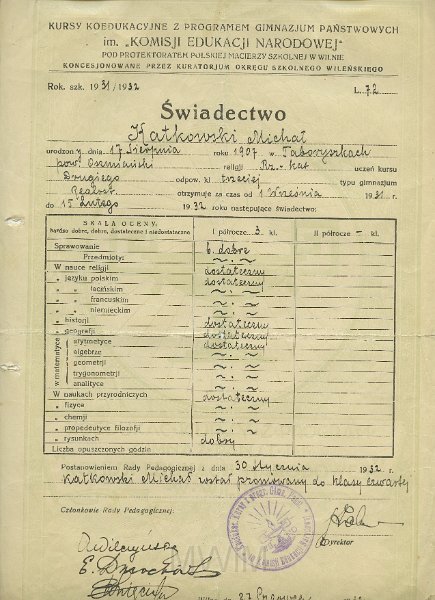 KURSY KOEDUKACYJNE Z PROGRAMEM GIMNAZJUM PAŃSTWOWYCH
im. „KOMISJI EDUKACJI NARODOWEJ"
POD PROTEKTORATEM POLSKIEJ MACIERZY SZKOLNEJ W WILNIE
KONCESJONOWANE PRZEZ KURATORJUM OKRĘGU SZKOLNEGO WILEŃSKIEGO
Rok. szk. 1931/1932 L. 72
Świadectwo
Katkowski Michał
urodzony dnia 17 Sierpnia roku 1907 w Taboryszkach
pow. Oszmiański religji Rz.-kat uczeń kursu
Drugiego odpow. kl trzeciej typu gimnazjum
otrzymuje za czas od 1 Września 1931 r.
do 15 Lutego 1932 roku następujące świadectwo:
SKALA OCENY:
bardzo dobre, dobre, dostateczne i niedostateczne
I półrocze 3 kl. II półrocze — kl.
Sprawowanie b. dobre
Przedmioty:
W nauce religji dostateczny
„ języku polskim dostateczny
„ „ łacińskim
„ „ francuskim
„ „ niemieckim
„ historji dostateczny
„ geografji dostateczny
w matematyce
arytmetyce dostateczny
algebrze
geometrji
trygonometrji
analityce
W naukach przyrodniczych dostateczny
„ fizyce
„ chemji
„ propedeutyce filozofji
„ rysunkach dobry
Liczba opuszczonych godzin
Postanowieniem Rady Pedagogicznej z dnia 30 stycznia 1932 r.
Katkowski Michał został promowany do klasy czwartej
Członkowie Rady Pedagogicznej:
Dyrektor
MWM